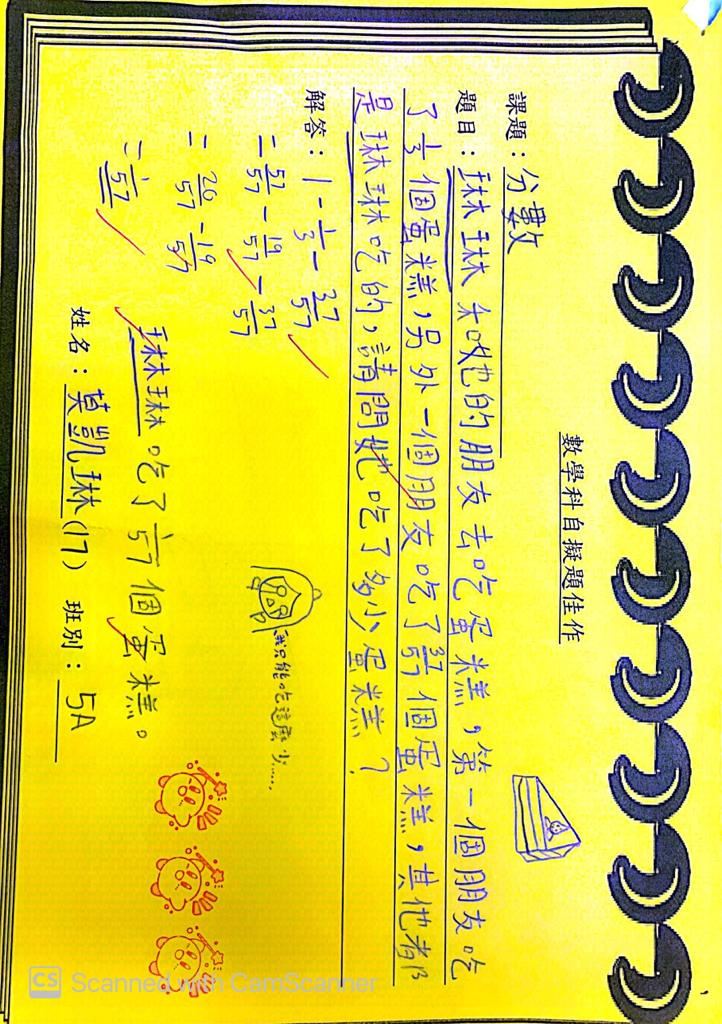 數學科自擬題佳作
課題：分數
題目：琳琳和她的朋友去吃蛋糕，第一個朋友吃
了1/3個蛋糕，另外一個朋友吃了37/57個蛋糕，其他都
是琳琳吃的，請問她吃了多小蛋糕？
解答：1 - 1/3 - 37/57
= 57/57 - 19/57 - 37/57
= 20/57 - 19/57
= 1/57
我只能吃這麼少......
琳琳吃了1/57個蛋糕。
姓名：莫凱琳(17) 班別：5A
CS Scanned with CamScanner